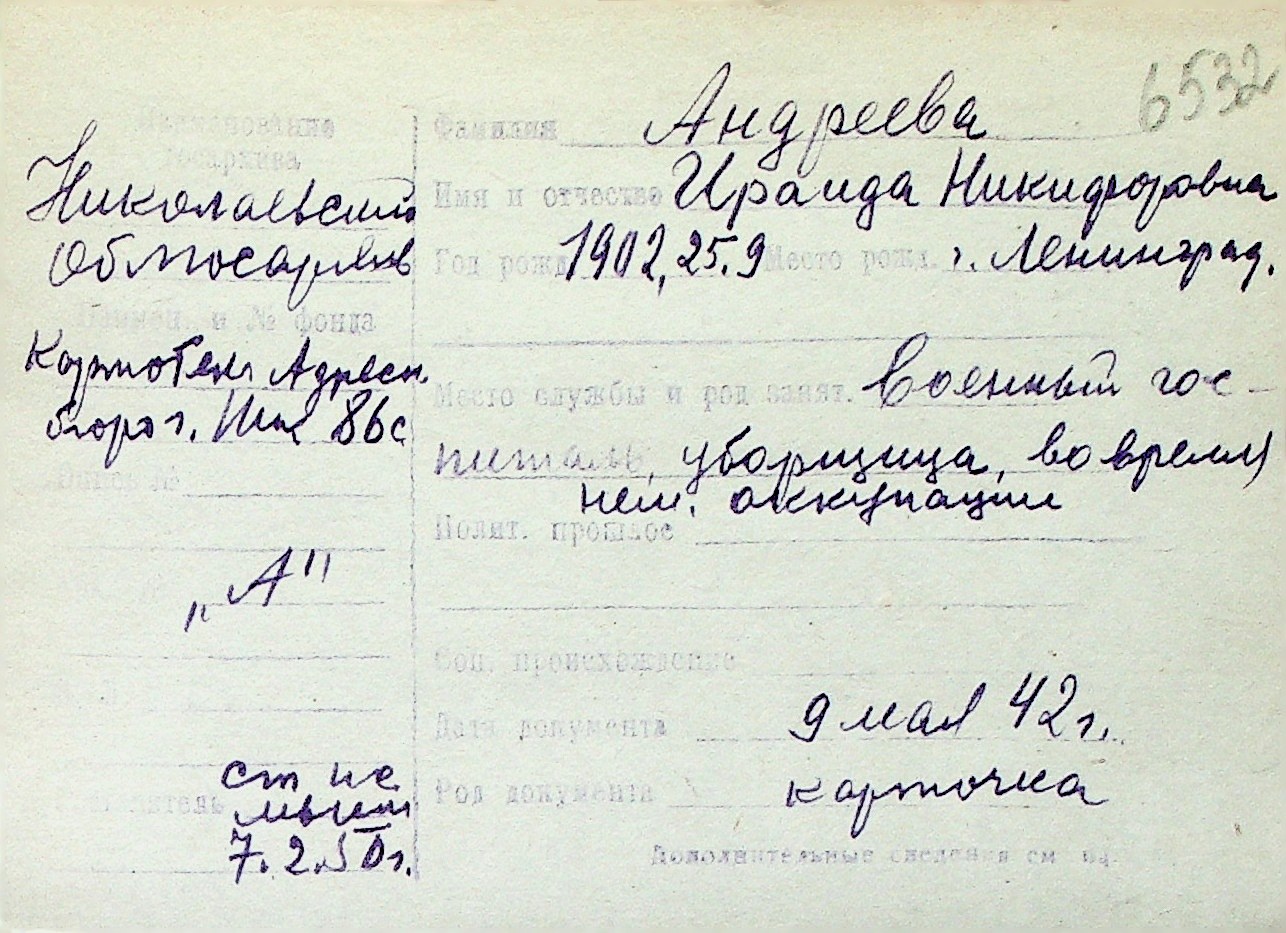 6532
Наименование
госархива
Николаевский
Облгосархив
Наимен. и № фонда
Картотека Адресн.
бюро г. 86с
Опись №
„А"
7.2.50г.
Фамилия Андреева
Имя и отчество Ираида Никифоровна
Год рожд. 1902, 25.9 Место рожд. г. Ленинград.
Место службы и род занят. Военный гос-
питаль, уборщица, во время
нем. оккупации
Полит. прошлое
Соц. происхождение
Дата документа 9 мая 42г.
Род документа карточка
Дополнительные сведения см. на